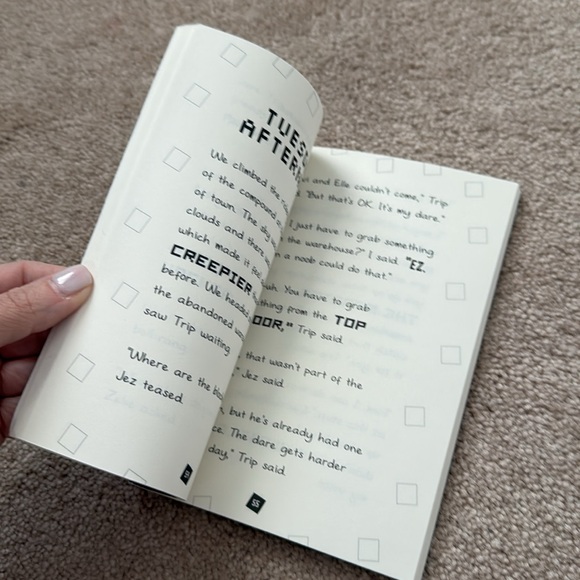 TUES
AFTER
We climbed the
of the compound
of town. The sky
clouds and there
which made it feel
CREEPIER
before. We headed
the abandoned
saw Trip waiting
"Where are the
Jez teased.
and Elle couldn't come," Trip
"But that's OK. It's my dare."
I just have to grab something
the warehouse?" I said. "EZ.
a noob could do that."
You have to grab
thing from the TOP
OOR," Trip said.
that wasn't part of the
Jez said.
but he's already had one
ce. The dare gets harder
day," Trip said.
55